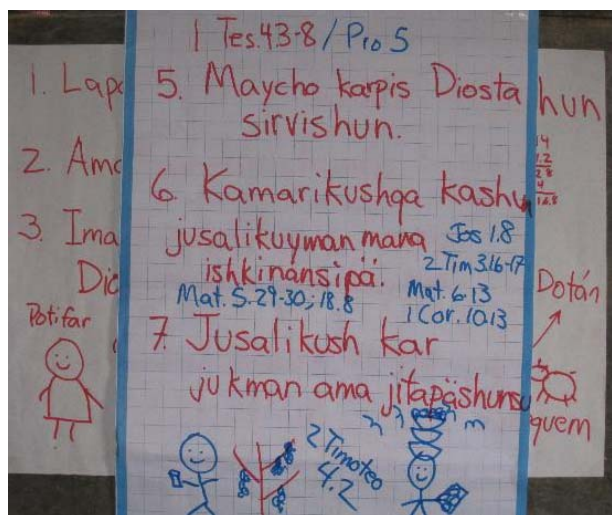 1 Tes. 4.3-8 / Pro 5
5. Maycho karpis Diosta
sirvishun.
6. Kamarikushqa kashun
jusalikuyman mana
ishkinansipä.
Jos 1.8
2 Tim 3.16-17
Mat. 5.29-30; 18.8
Mat. 6.13
1 Cor. 10.13
7. Jusalikush kar
jukman ama jitapäshunsu
2 Timoteo
4.2
1. Lapa
hun
2. Ama
3. Ima
Dio
Potifar
Dotán
quem